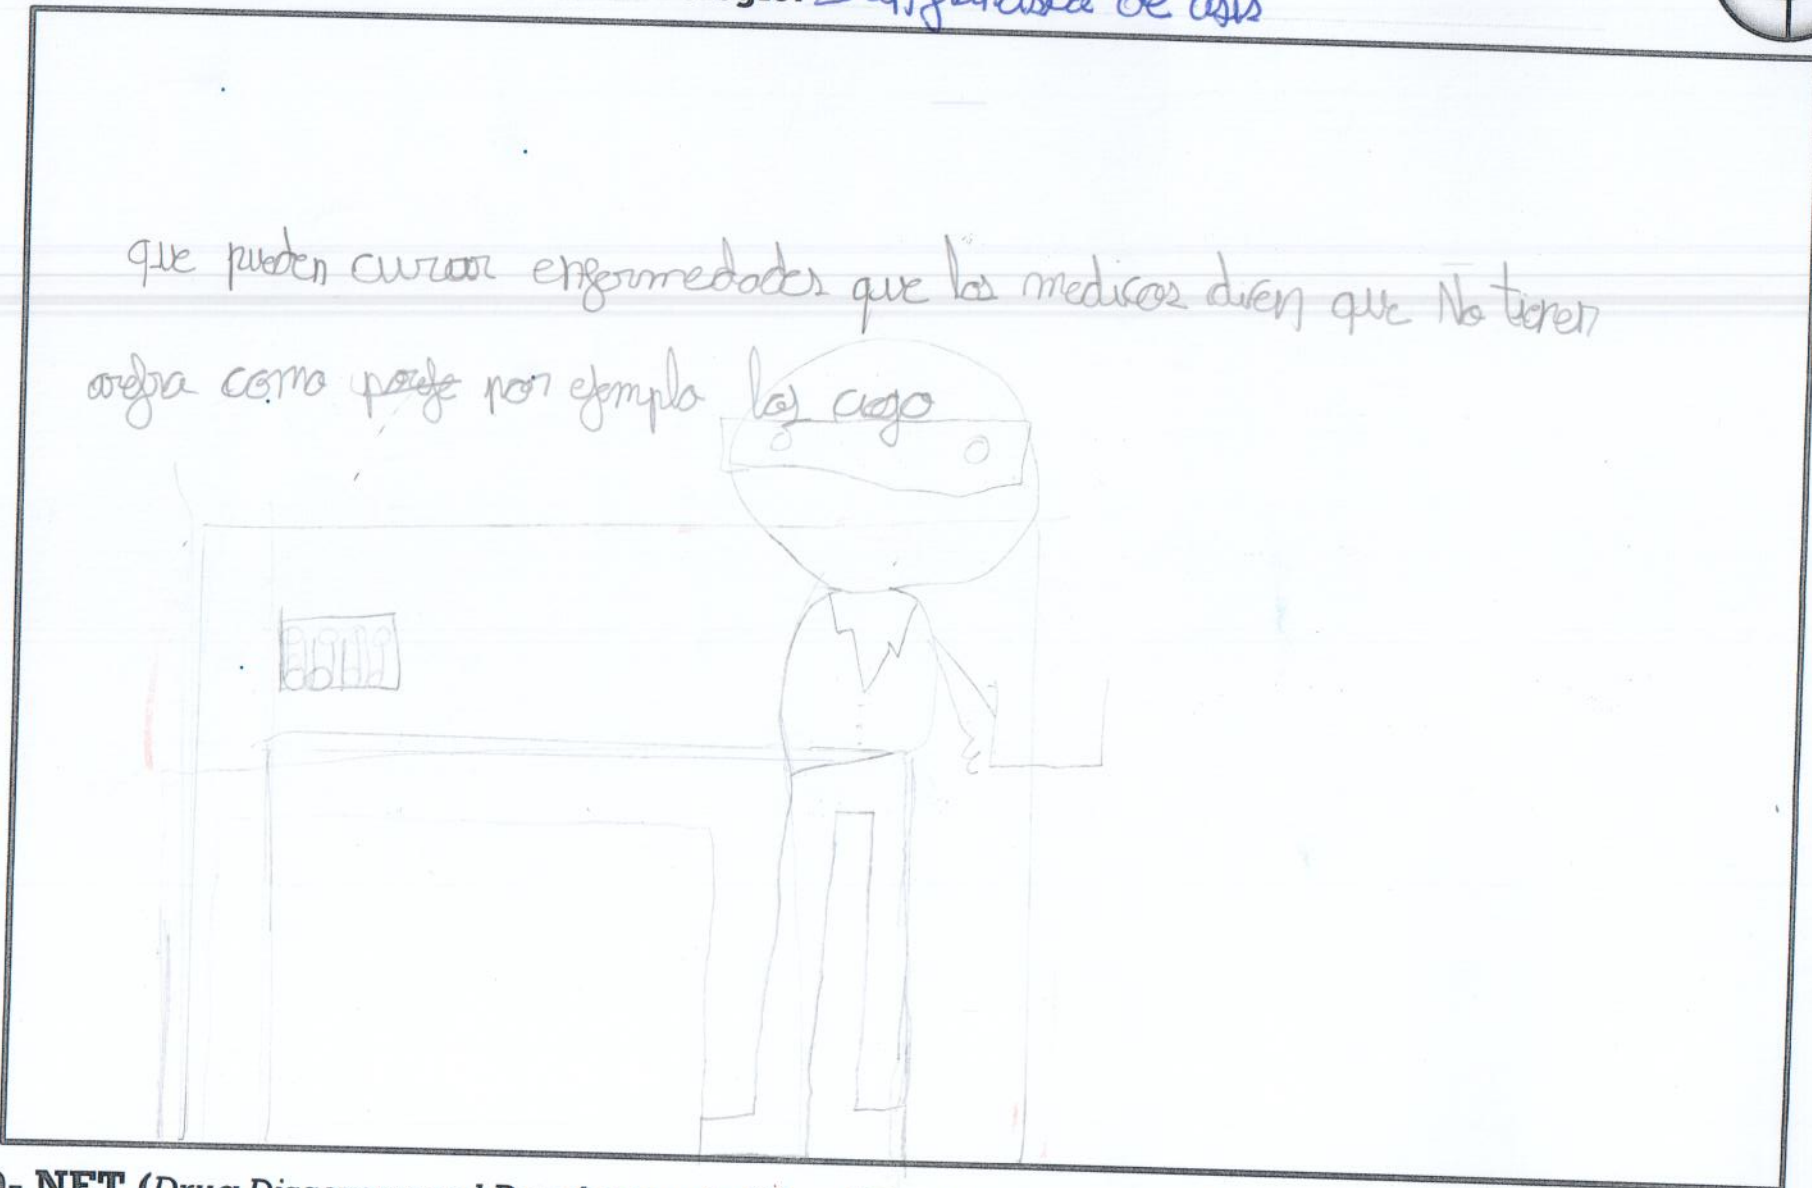 de asis
que pueden curar enfermedades que los medicos dicen que No tienen
como por ejemplo los ciego
NET (Drug Discovery and